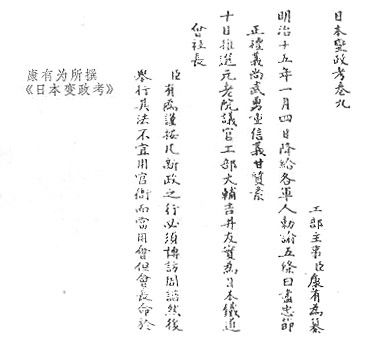 日本變政考卷九
工部主事臣康有為纂
明治十五年一月四日降給各軍人勅諭五條曰盡忠節
正禮義尚武勇重信義甘質素
十日推選元老院議官工部大輔吉井友實為日本鐵道
會社長
臣有為謹按凡新政之行必須博訪周諮然後
舉行其法不宜用官衙而當用會但會長命於
康有为所撰
《日本变政考》